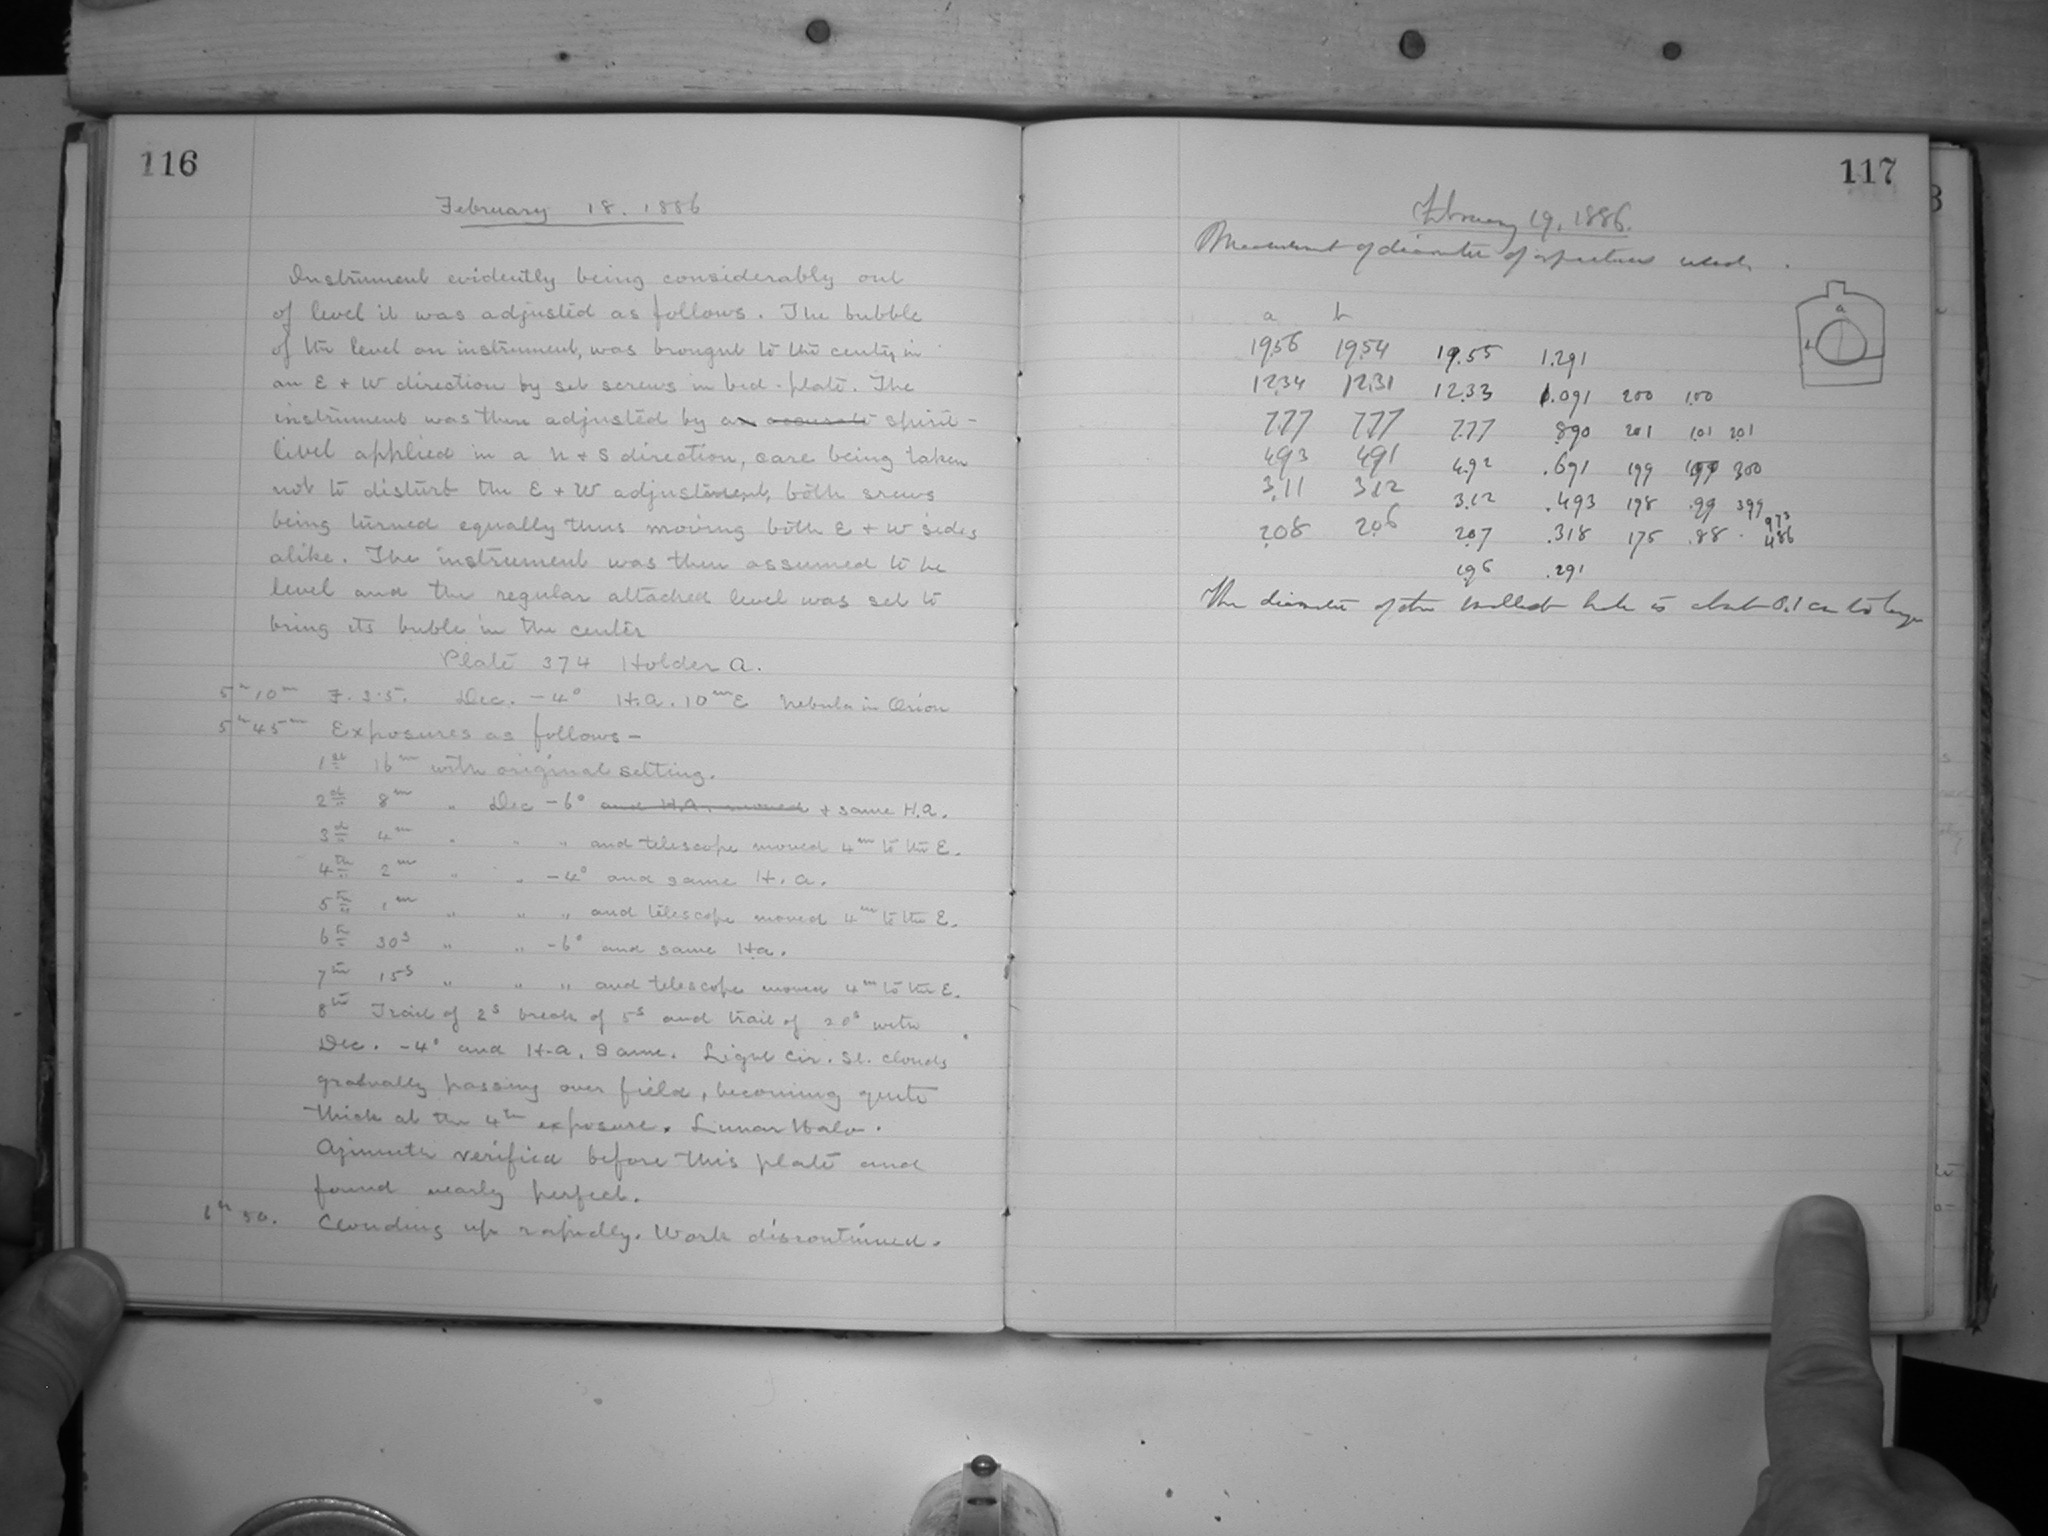 116
February 18. 1886
Instrument evidently being considerably out
of level it was adjusted as follows. The bubble
of the level on instrument, was brought to the center in
an E + W direction by set screws in bed-plate. The
instrument was then adjusted by an accurate spirit-
level applied in a N + S direction, care being taken
not to disturb the E + W adjustment, both screws
being turned equally thus moving both E + W sides
alike. The instrument was then assumed to be
level and the regular attached level was set to
bring its buble in the center
Plate 374 Holder A.
5h 10m F. 3.5. Dec. -4° H.A. 10m E Nebula in Orion
5h 45m Exposures as follows-
1st 16m with original setting.
2d 8m " Dec -6° and H.A. moved + same H.A.
3d 4m " " " and telescope moved 4m to the E.
4th 2m " " -4° and same H.A.
5th 1m " " " and telescope moved 4m to the E.
6th 30s " " -6° and same H.A.
7th 15s " " " and telescope moved 4m to the E.
8th Trail of 2s break of 5s and trail of 20s with
Dec. -4° and H.A. Same. Light cir. st. clouds
gradually passing over field, becoming quite
thick at the 4th exposure. Lunar Halo.
Azimuth verified before this plate and
found nearly perfect.
6h 50. Clouding up rapidly. Work discontinued.
117
February 19, 1886.
Measurement of diameter of apertures used.
a b
19.56 19.54 19.55 1.291
12.34 12.31 12.33 1.091 200 100
7.77 7.77 7.77 .890 201 101 201
4.93 4.91 4.92 .691 199 300
3.11 3.12 3.12 .493 198 .99 399
2.08 2.06 2.07 .318 175 .88 486
1.96 .291
The diameter of the smallest hole is about 0.1 cm too large
a
b